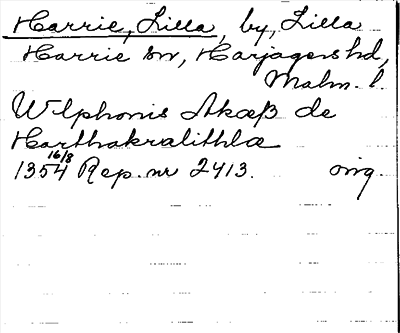 Harrie, Lilla, by, Lilla
Harrie sn, Harjagers hd,
Malm. l.
Wlphonis Akæß de
Harthakralithlæ
1354 16/8 Rep. nr 2413. orig.